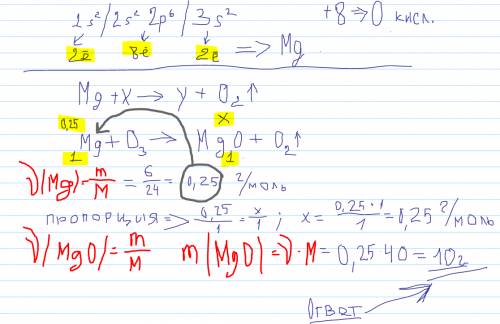 1s² / 2s² 2p⁶ / 3s² +8 => O кисл.
2ē 8ē 2ē => Mg
Mg + x → y + O₂↑
0,25 x
Mg + O₃ → MgO + O₂↑
1 1
ν(Mg) = m/M = 6/24 = 0,25 г/моль
пропорция => 0,25/1 = x/1 ; x = 0,25·1/1 = 0,25 г/моль
ν(MgO) = m/M m(MgO) = ν·M = 0,25·40 = 10г
Ответ